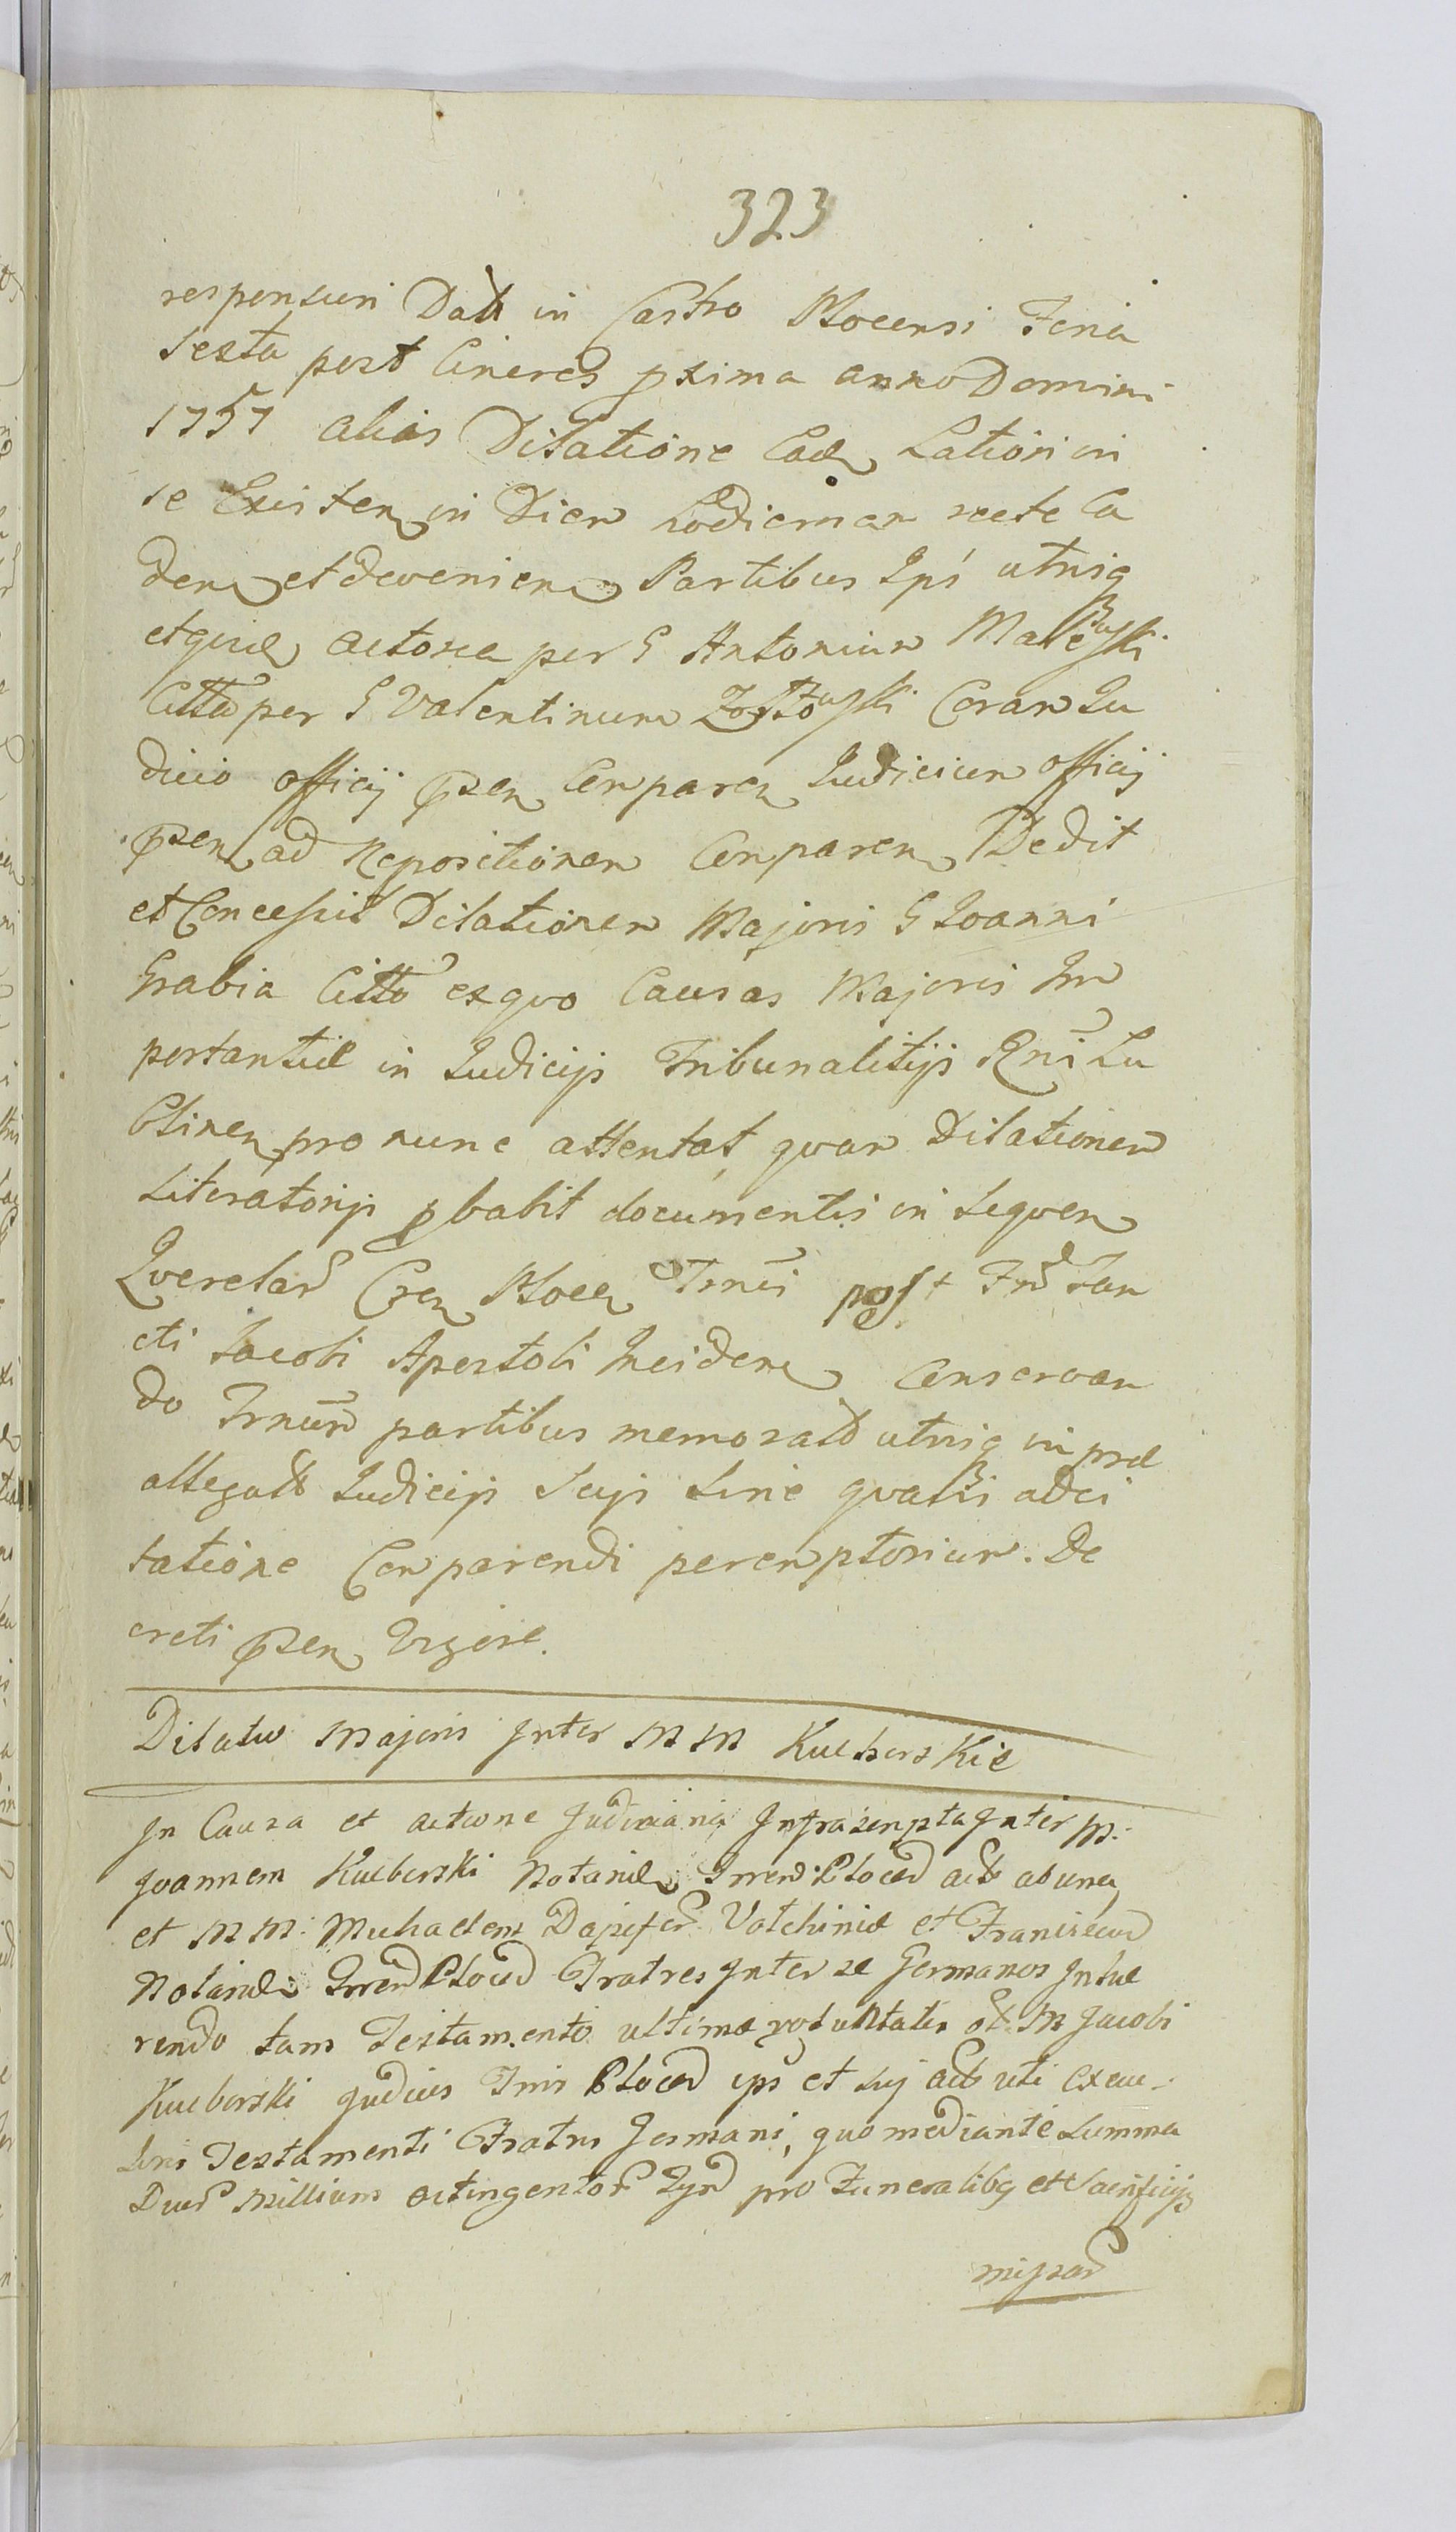 323
responsuri Datt in Castro Plocensi Feria
sexta post Cineres pxima anno Domini
1757 alias Dilatione Ead Lationi in
se Existen in Diem hodiernam recte Ca
den et devenien Partibus Ipś utrisq
etquid actorea per G Antonium
Citta per G Valentinum Coram Ju
dicio officij pñsen Comparen Judicium officij
pñsen ad Repositionem Comparen Dedit
et Concessit Dilationem Majoris G Joanni
Grabia Citto exquo Causas Majoris Im
portantiæ in Judicijs Tribunalitijs Rgni Lu
blinen pro nunc attentat, quam Dilationem
Literatorijs pbabit documentis in sequen
Querelar Cren Plocen Trmi post Frd San
cti Jacobi Apostoli Inciden Conservan
do Trnum partibus memorad utrisq in præ
allegatt Judicijs Suis Sine quavis adci
tatione Comparendi peremptorium. De
creti pñsen Vigore.
Dilatio Majoris Inter MM Kuczborskie
In Causa et actione Judiciaria Infrascripta Inter M:
Joannem Kuczborski Notariũ Trren Plocen act ab una
et MM: Michaelem Dapifer Volchiniæ et Franciscum
Notariũ Trren Plocen Fratres Inter se Germanos Inhæ
rendo tam Testamento ultimæ voluntatis ol M Jacobi
Kuczborski Judicis Trris Plocen ips et suj act uti Execu-
toris Testamenti Fratris Germani, quo mediante Summa
Duor Millium octingentor Tynf pro Funeralibq et Sacrificijs
missar